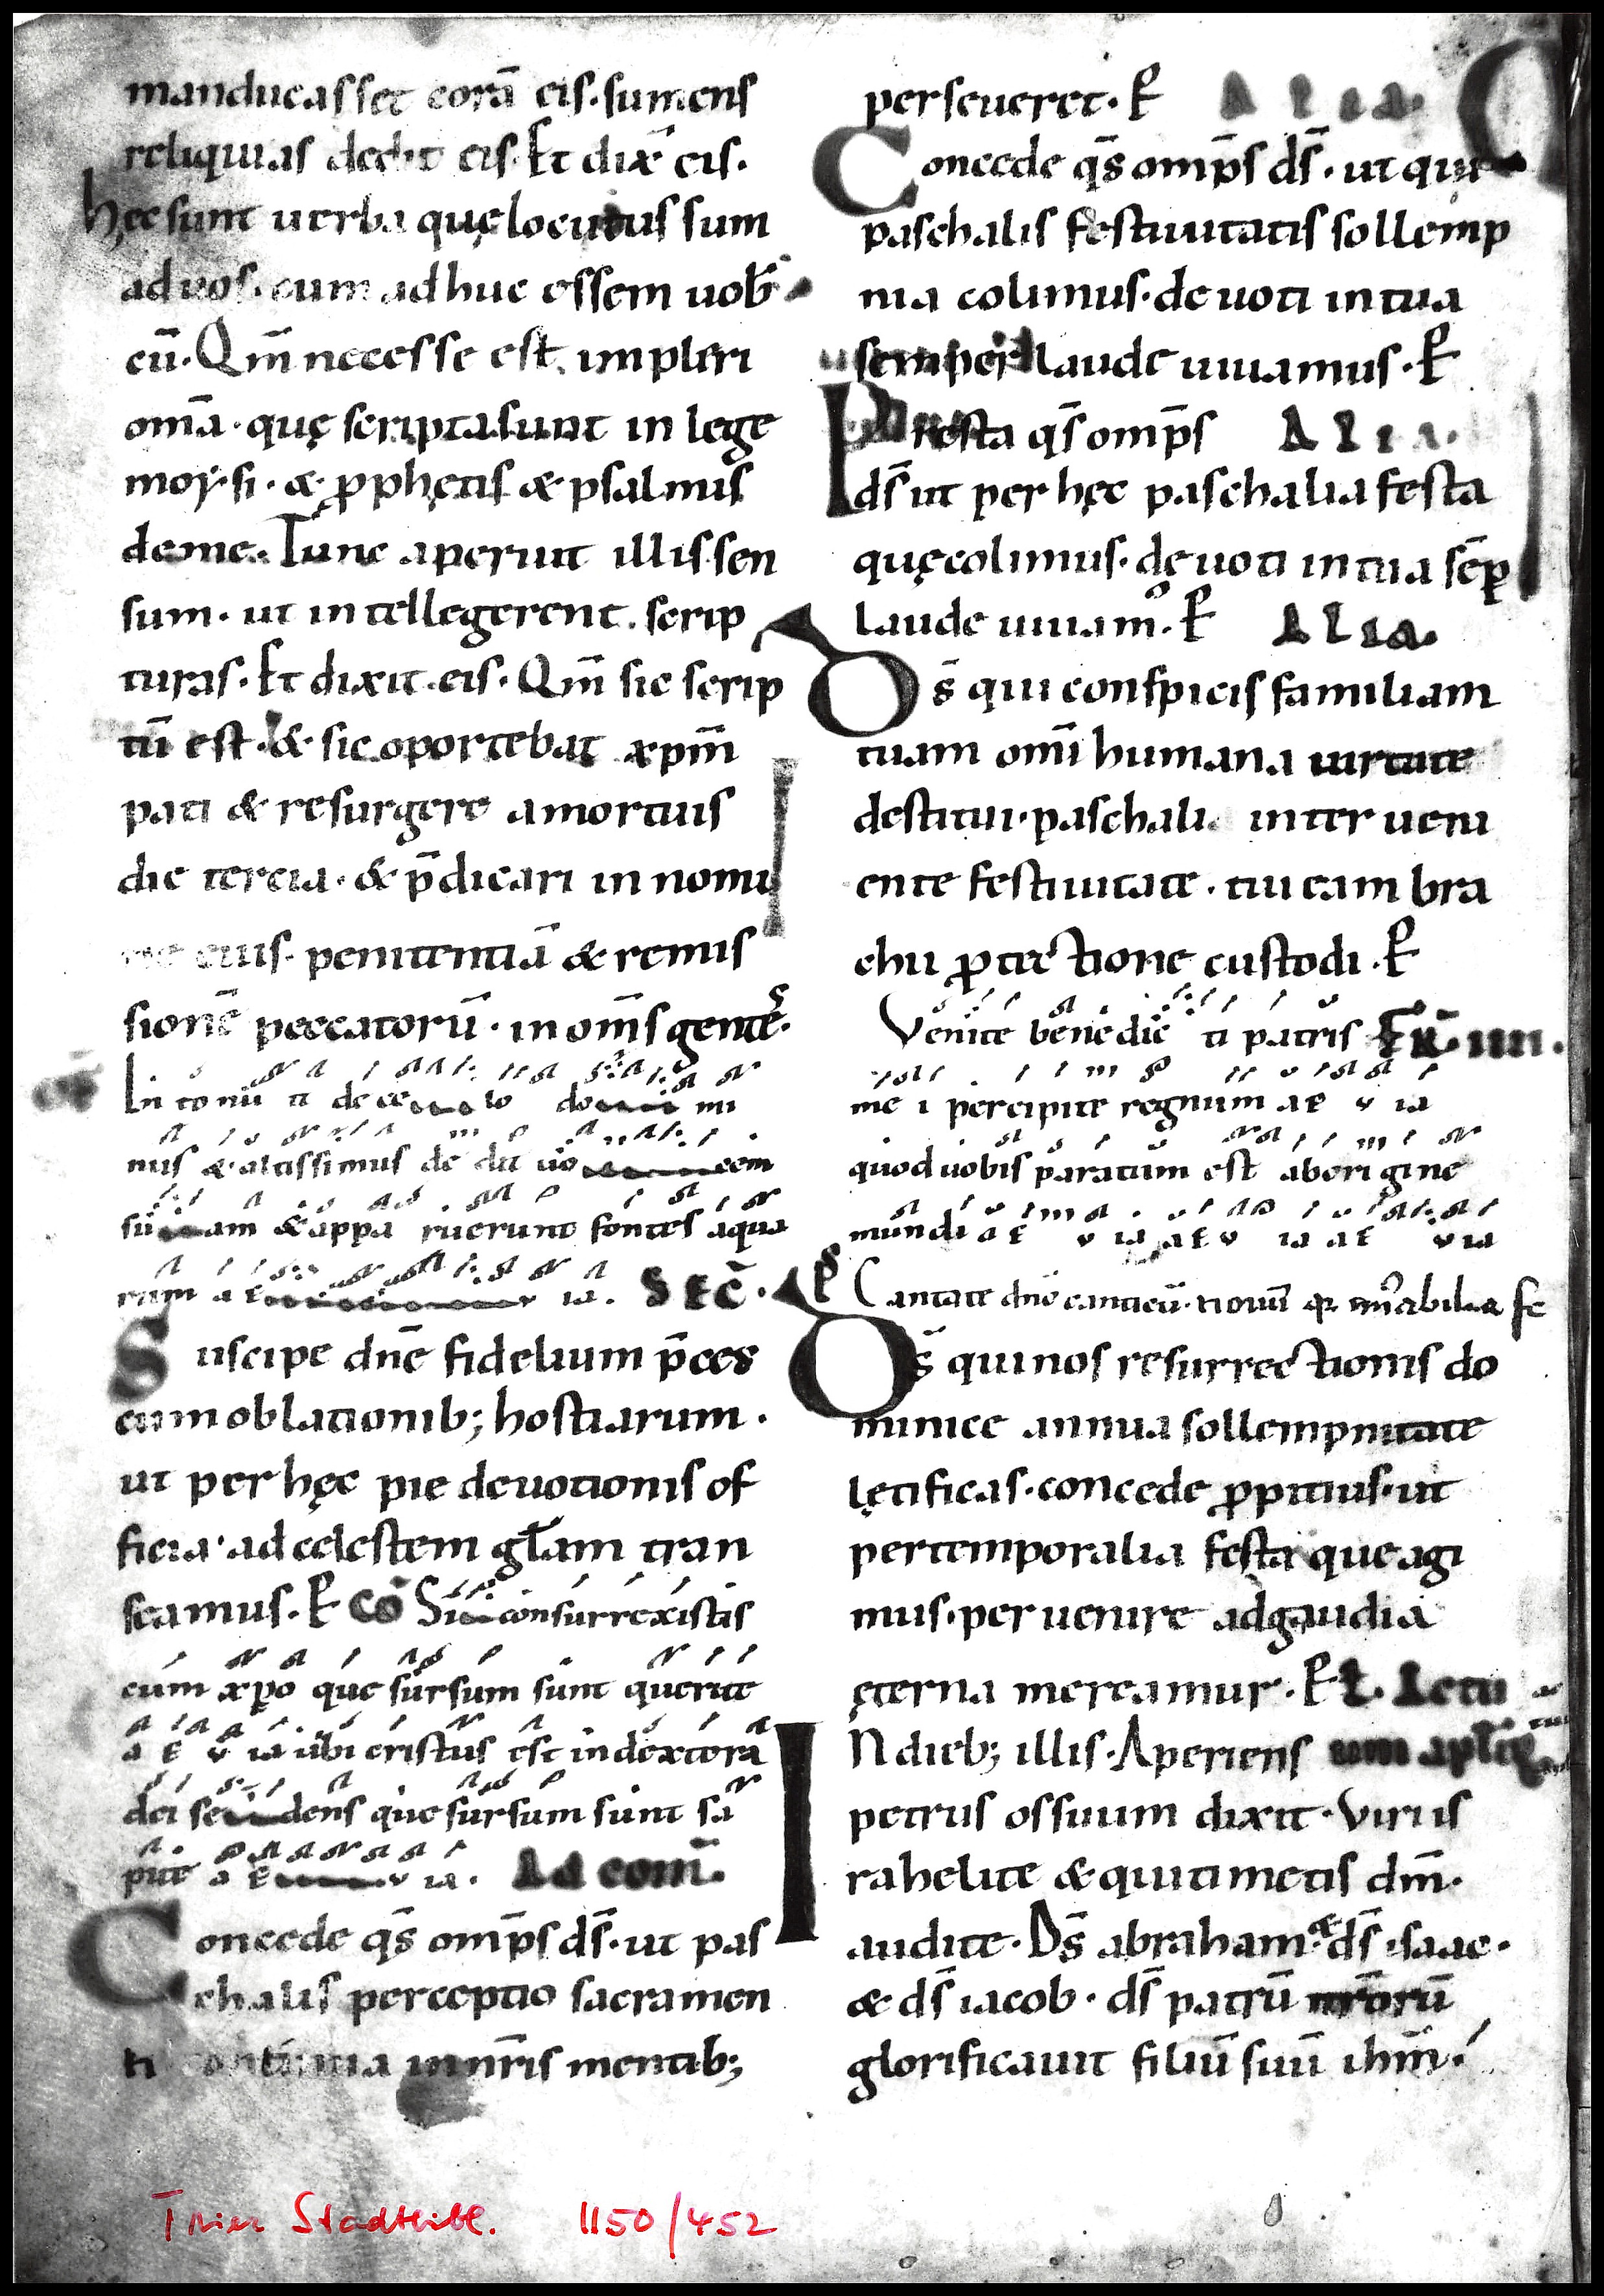 manducasset corā eis. sumens
reliquias dedit eis. Et dix̄ eis.
hęc sunt uerba quę locutus sum
ad uos. cum adhuc essem uob̄
cū. Qm̄ necesse est impleri
om̄a. quę scripta sunt in lege
moysi. & ꝓphętis & psalmis
de me. Tunc aperuit illis sen
sum. ut intellegerent. scrip
turas. Et dixit eis. Qm̄ sic scrip
tū est. & sic oportebat xpm̄
pati & resurgere a mortuis
die tercia. & p̄dicari in nomi
ne eius. penitentiā & remis
sionē peccatorū. in om̄s gentes.
oꝼ̄ In to nu it de ce lo do mi
nus & altissimus de dit uo cem
su am & appa ruerunt fontes aqua
rum a e v ia. SEC̄.
Suscipe dn̄e fidelium p̄ces
cum oblationib; hostiarum.
ut per hęc pie deuotionis of
ficia. ad celestem gl̄am tran
seamus. P̱ CŌ Si consurrexistis
cum xp̄o que sursum sunt querite
a e v ia ubi cristus est in dextera
dei se dens que sursum sunt sa
pite a e v ia. Ad com̄.
Concede qs̄ omp̄s ds̄. ut pas
chalis perceptio sacramen
ti continua in nr̄is mentib;
perseueret. P̱ Alia.
Concede qs̄ omp̄s ds̄. ut qui
paschalis festiuitatis sollemp
nia colimus. deuoti in tua
semper laude uiuamus. P̱
Presta qs̄ omp̄s Alia.
ds̄ ut per hęc paschalia festa
quę colimus. deuoti in tua sēp
laude uiuam᷒. P̱ Alia.
Ds̄ qui conspicis familiam
tuam omī humana uirtute
destitui. paschali interueni
ente festiuitate. tui eam bra
chii ꝓtectione custodi. P̱
Venite benedic ti patris FR̄. IIII.
me i percipite regnum a e v ia
quod uobis paratum est ab origine
mundi a e v ia a e v ia a e v ia
Ps Cantate dn̄o canticū nouū q̄ mirabilia fe
Ds̄ qui nos resurrectionis do
minice annua sollempnitate
lętificas. concede ꝓpitius. ut
per temporalia festa que agi
mus. peruenire ad gaudia
ęterna mereamur. P̱ Lectio
IN dieb; illis. Aperiens
petrus os suum dixit. Viri is
rahelite & qui timetis dm̄.
audite. Ds̄ abraham. & ds̄ isaac.
& ds̄ iacob. ds̄ patrū nr̄orū
glorificauit filiū suū ihm̄.
Trier Stadtbibl. 1150/452